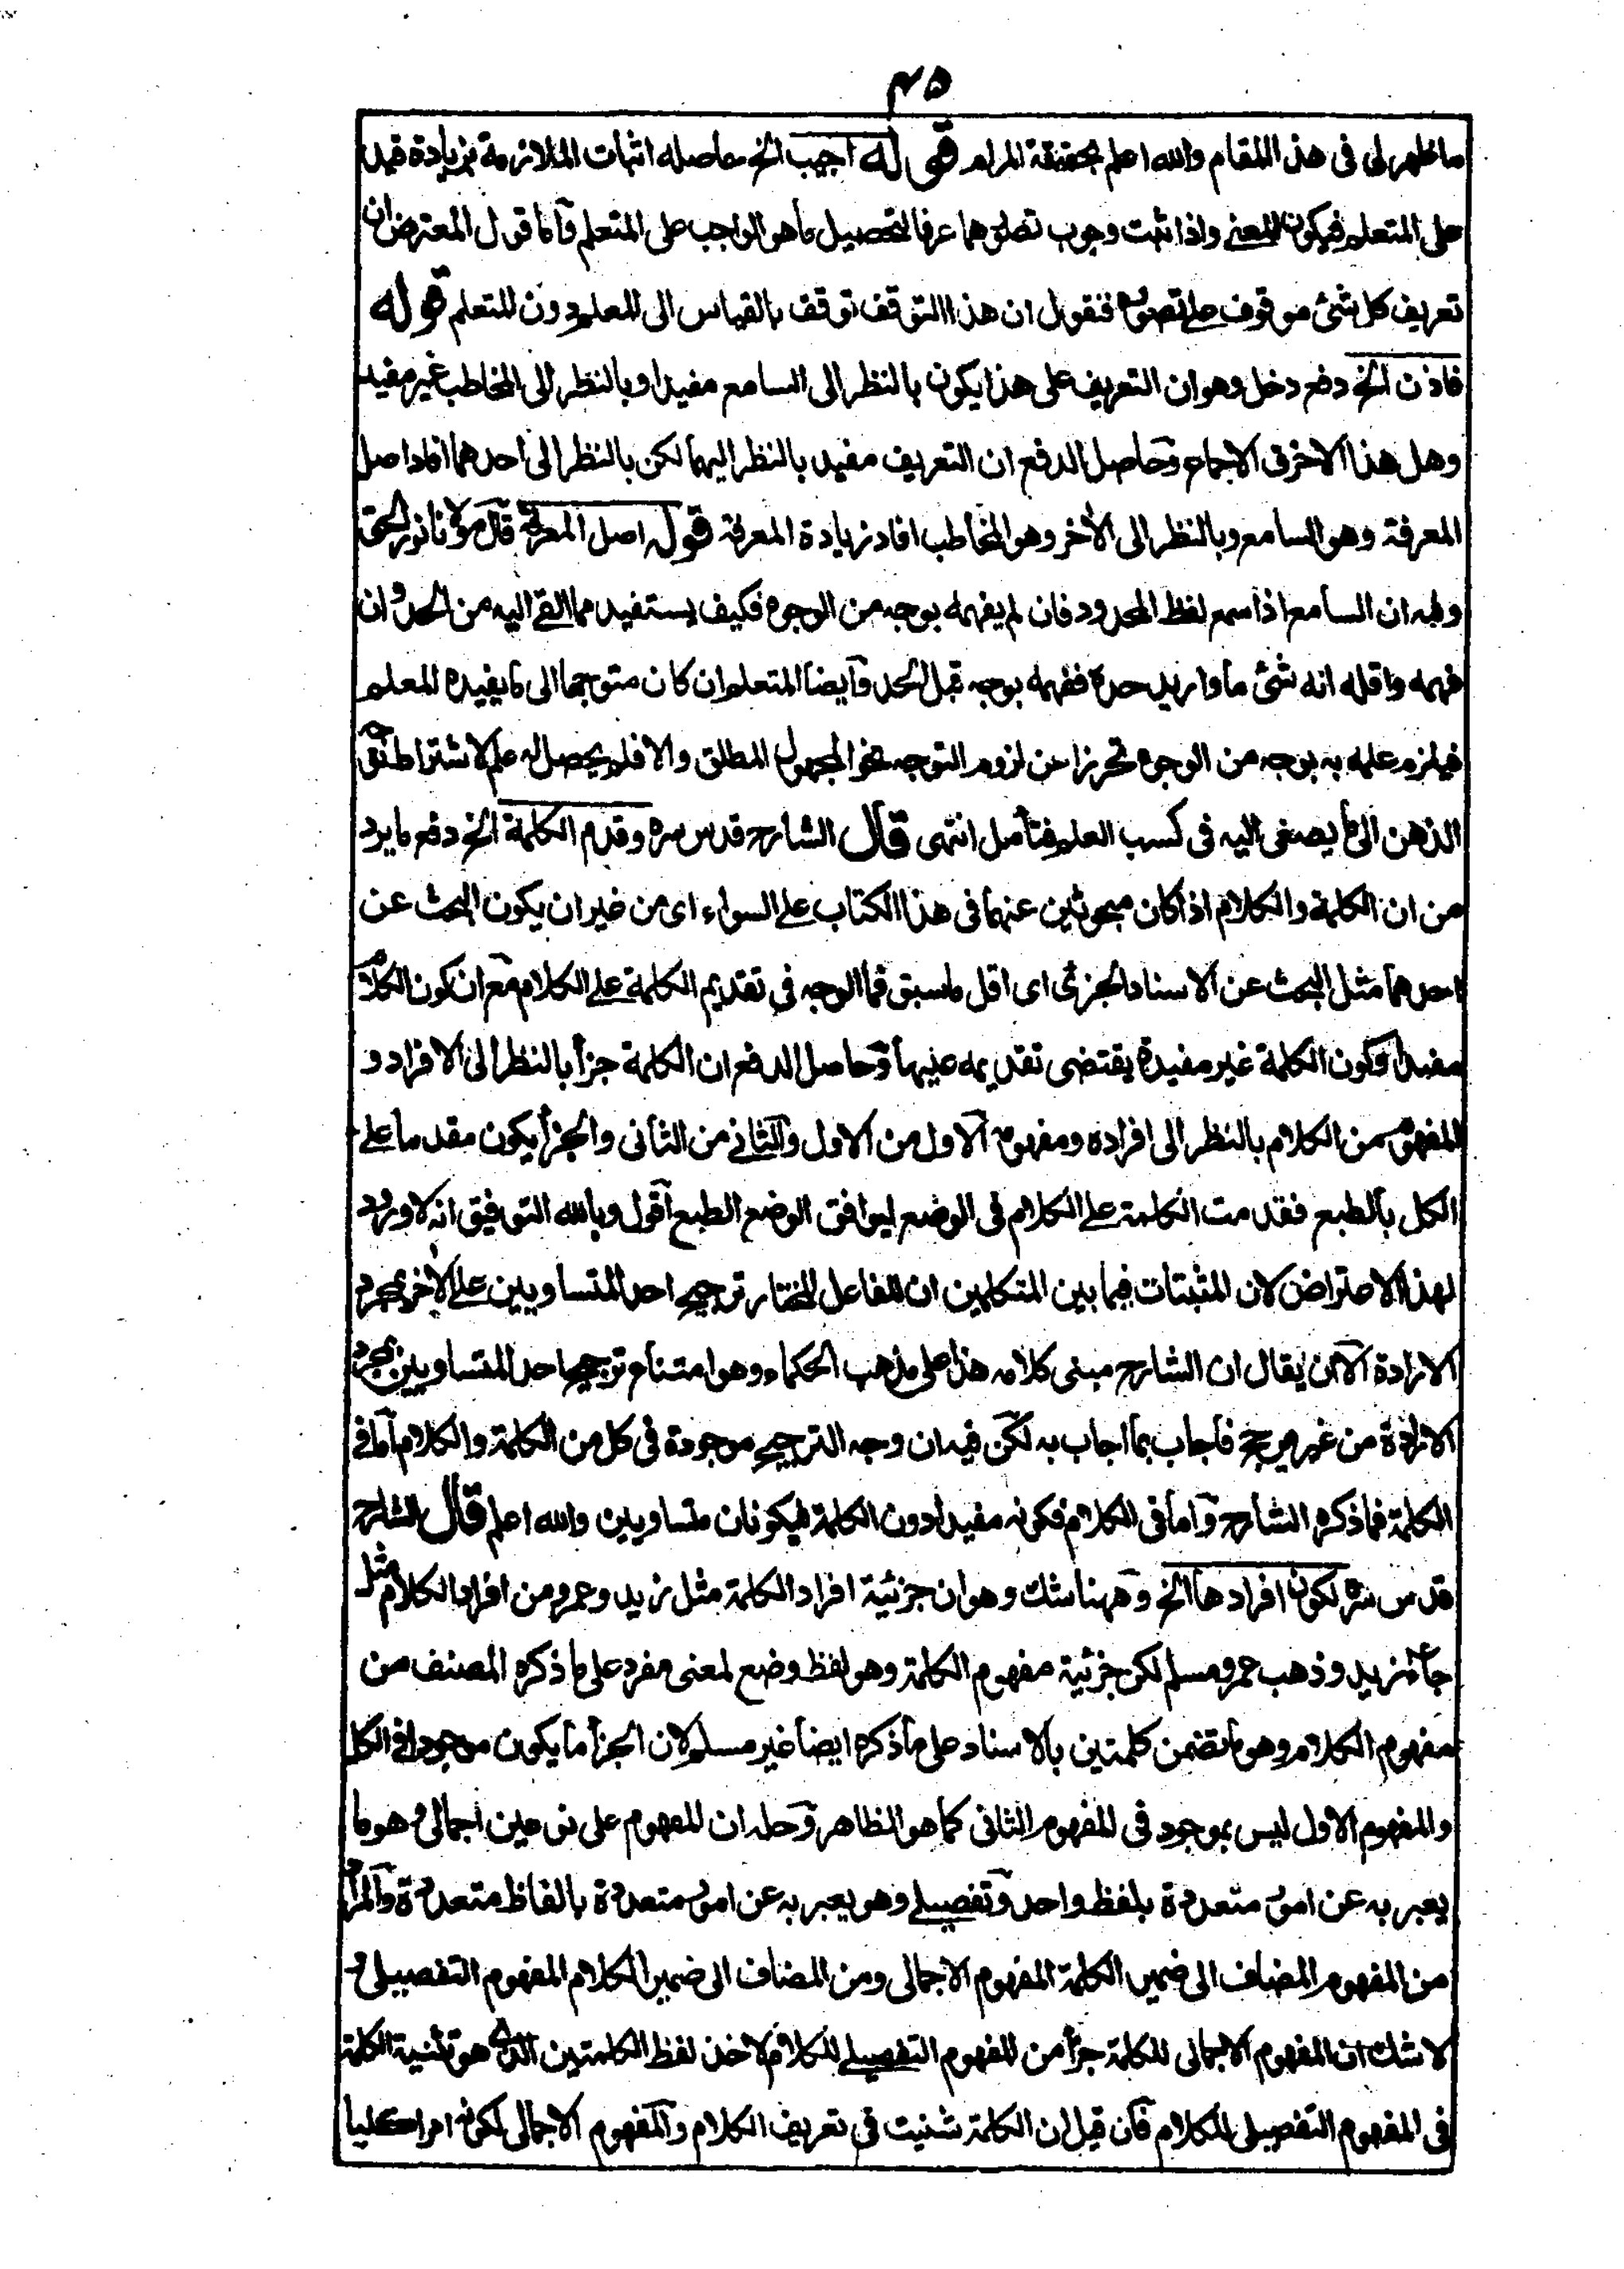 ٤٥
ما ظهر لى فى هذا المقام والله اعلم بحقيقة المرام قوله اجيب الخ حاصله اثبات الملازمة بزيادة قيد
على المتعلم فيكون المعنى واذا ثبت وجوب تصورهما عرفا لتحصيل ما هو الواجب على المتعلم وآما قول المعترض ان
تعريف كل شئ موقوف على تصوره فنقول ان هذا التوقف توقف بالقياس الى المعلم دون المتعلم قوله
فاذن الخ دفع دخل وهو ان التعريف على هذا يكون بالنظر الى السامع مفيدا وبالنظر الى المخاطب غير مفيد
وهل هذا الا خرق الاجماع وحاصل الدفع ان التعريف مفيد بالنظر اليهما لكن بالنظر الى احدهما افاد اصل
المعرفة وهو السامع وبالنظر الى الأخر وهو المخاطب افاد زيادة المعرفة قوله اصل المعرفة قال مولانا نور الحق
وفيه ان السامع اذا سمع لفظ المحدود فان لم يفهمه بوجه من الوجوه فكيف يستفيد مما القى اليه من الحد وان
فهمه واقله انه شئ ما واريد حده ففهمه بوجه قبل الحد وآيضا المتعلم ان كان متوجها الى ما يفيده المعلم
فيلزم علمه به بوجه من الوجوه تحرزا عن لزوم التوجه نحو المجهول المطلق والا فلم يحصل له علم لاشتراط توجه
الذهن الى ما يصغى اليه فى كسب العلم فتأمل انتهى قال الشارح قدس سره وقدم الكلمة الخ دفع ما يرد
من ان الكلمة والكلام اذا كان مبحوثين عنهما فى هذا الكتاب على السواء اى من غير ان يكون البحث عن
احدهما مثل البحث عن الاسناد الجزئى اى اقل ما سبق فما الوجه فى تقديم الكلمة على الكلام مع ان كون الكلام
مفيدا وكون الكلمة غير مفيدة يقتضى تقديمه عليها وحاصل الدفع ان الكلمة جزأ بالنظر الى الافراد و
المفهوم من الكلام بالنظر الى افراده ومفهومه الاول من الاول والثانى من الثانى والجزأ يكون مقدما على
الكل بالطبع فقدمت الكلمة على الكلام فى الوضع ليوافق الوضع الطبع آقول وبالله التوفيق انه لا ورود
لهذا الاعتراض لان المثبتات فيما بين المتكلمين ان للفاعل المختار ترجيح احد المتساويين على الأخر بمجرد
الارادة الا ان يقال ان الشارح مبنى كلامه هذا على مذهب الحكماء وهو امتناع ترجيح احد المتساويين بمجرد
الارادة من غير مرجح فأجاب بما اجاب به لكن فيه ان وجه الترجيح موجودة فى كل من الكلمة والكلام آما فى
الكلمة فما ذكره الشارح وآما فى الكلام فكونه مفيدا دون الكلمة فيكونان متساويين والله اعلم قال الشارح
قدس سره لكون افرادها الخ وههنا شك وهو ان جزئية افراد الكلمة مثل زيد وعمرو من افراد الكلام مثل
جاء زيد وذهب عمرو مسلم لكن جزئية مفهوم الكلمة وهو لفظ وضع لمعنى مفرد على ما ذكره المصنف من
مفهوم الكلام وهو ما تضمن كلمتين بالاسناد على ما ذكره ايضا غير مسلم لان الجزأ ما يكون موجودا فى الكل
والمفهوم الاول ليس بموجود فى المفهوم الثانى كما هو الظاهر وحله ان المفهوم على نوعين اجمالى وهو ما
يعبر به عن امور متعددة بلفظ واحد وتفصيلى وهو يعبر به عن امور متعددة بالفاظ متعددة والمراد
من المفهوم المضاف الى ضمير الكلمة المفهوم الاجمالى ومن المضاف الى ضمير الكلام المفهوم التفصيلى و
لا شك ان المفهوم الاجمالى للكلمة جزأ من المفهوم التفصيلى للكلام لاخذ لفظ الكلمتين الذى هو تثنية الكلمة
فى المفهوم التفصيلى للكلام فآن قيل ان الكلمة ثنيت فى تعريف الكلام والمفهوم الاجمالى لكونه امرا كليا